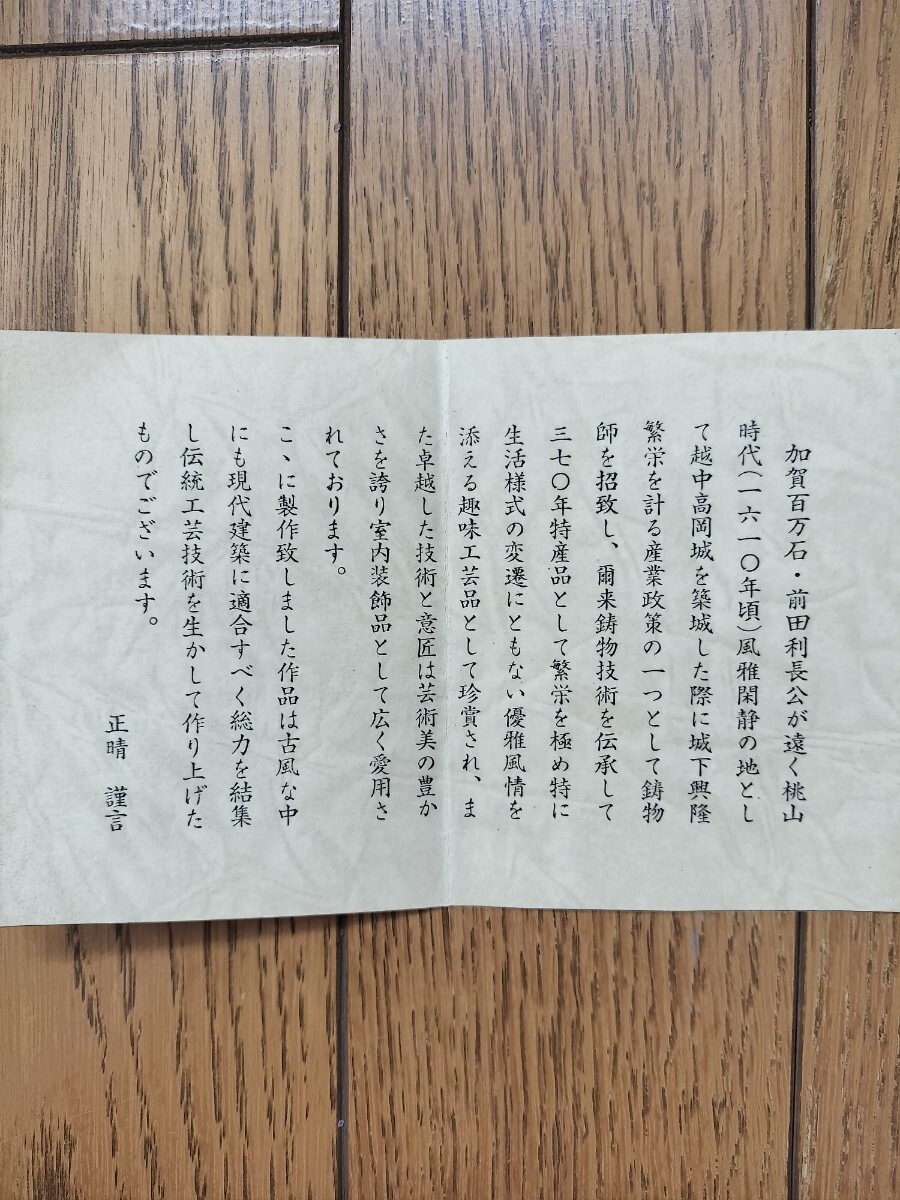 加賀百万石・前田利長公が遠く桃山
時代(一六一〇年頃)風雅閑静の地とし
て越中高岡城を築城した際に城下興隆
繁栄を計る産業政策の一つとして鋳物
師を招致し、爾来鋳物技術を伝承して
三七〇年特産品として繁栄を極め特に
生活様式の変遷にともない優雅風情を
添える趣味工芸品として珍賞され、ま
た卓越した技術と意匠は芸術美の豊か
さを誇り室内装飾品として広く愛用さ
れております。
こゝに製作致しました作品は古風な中
にも現代建築に適合すべく総力を結集
し伝統工芸技術を生かして作り上げた
ものでございます。
正晴 謹言